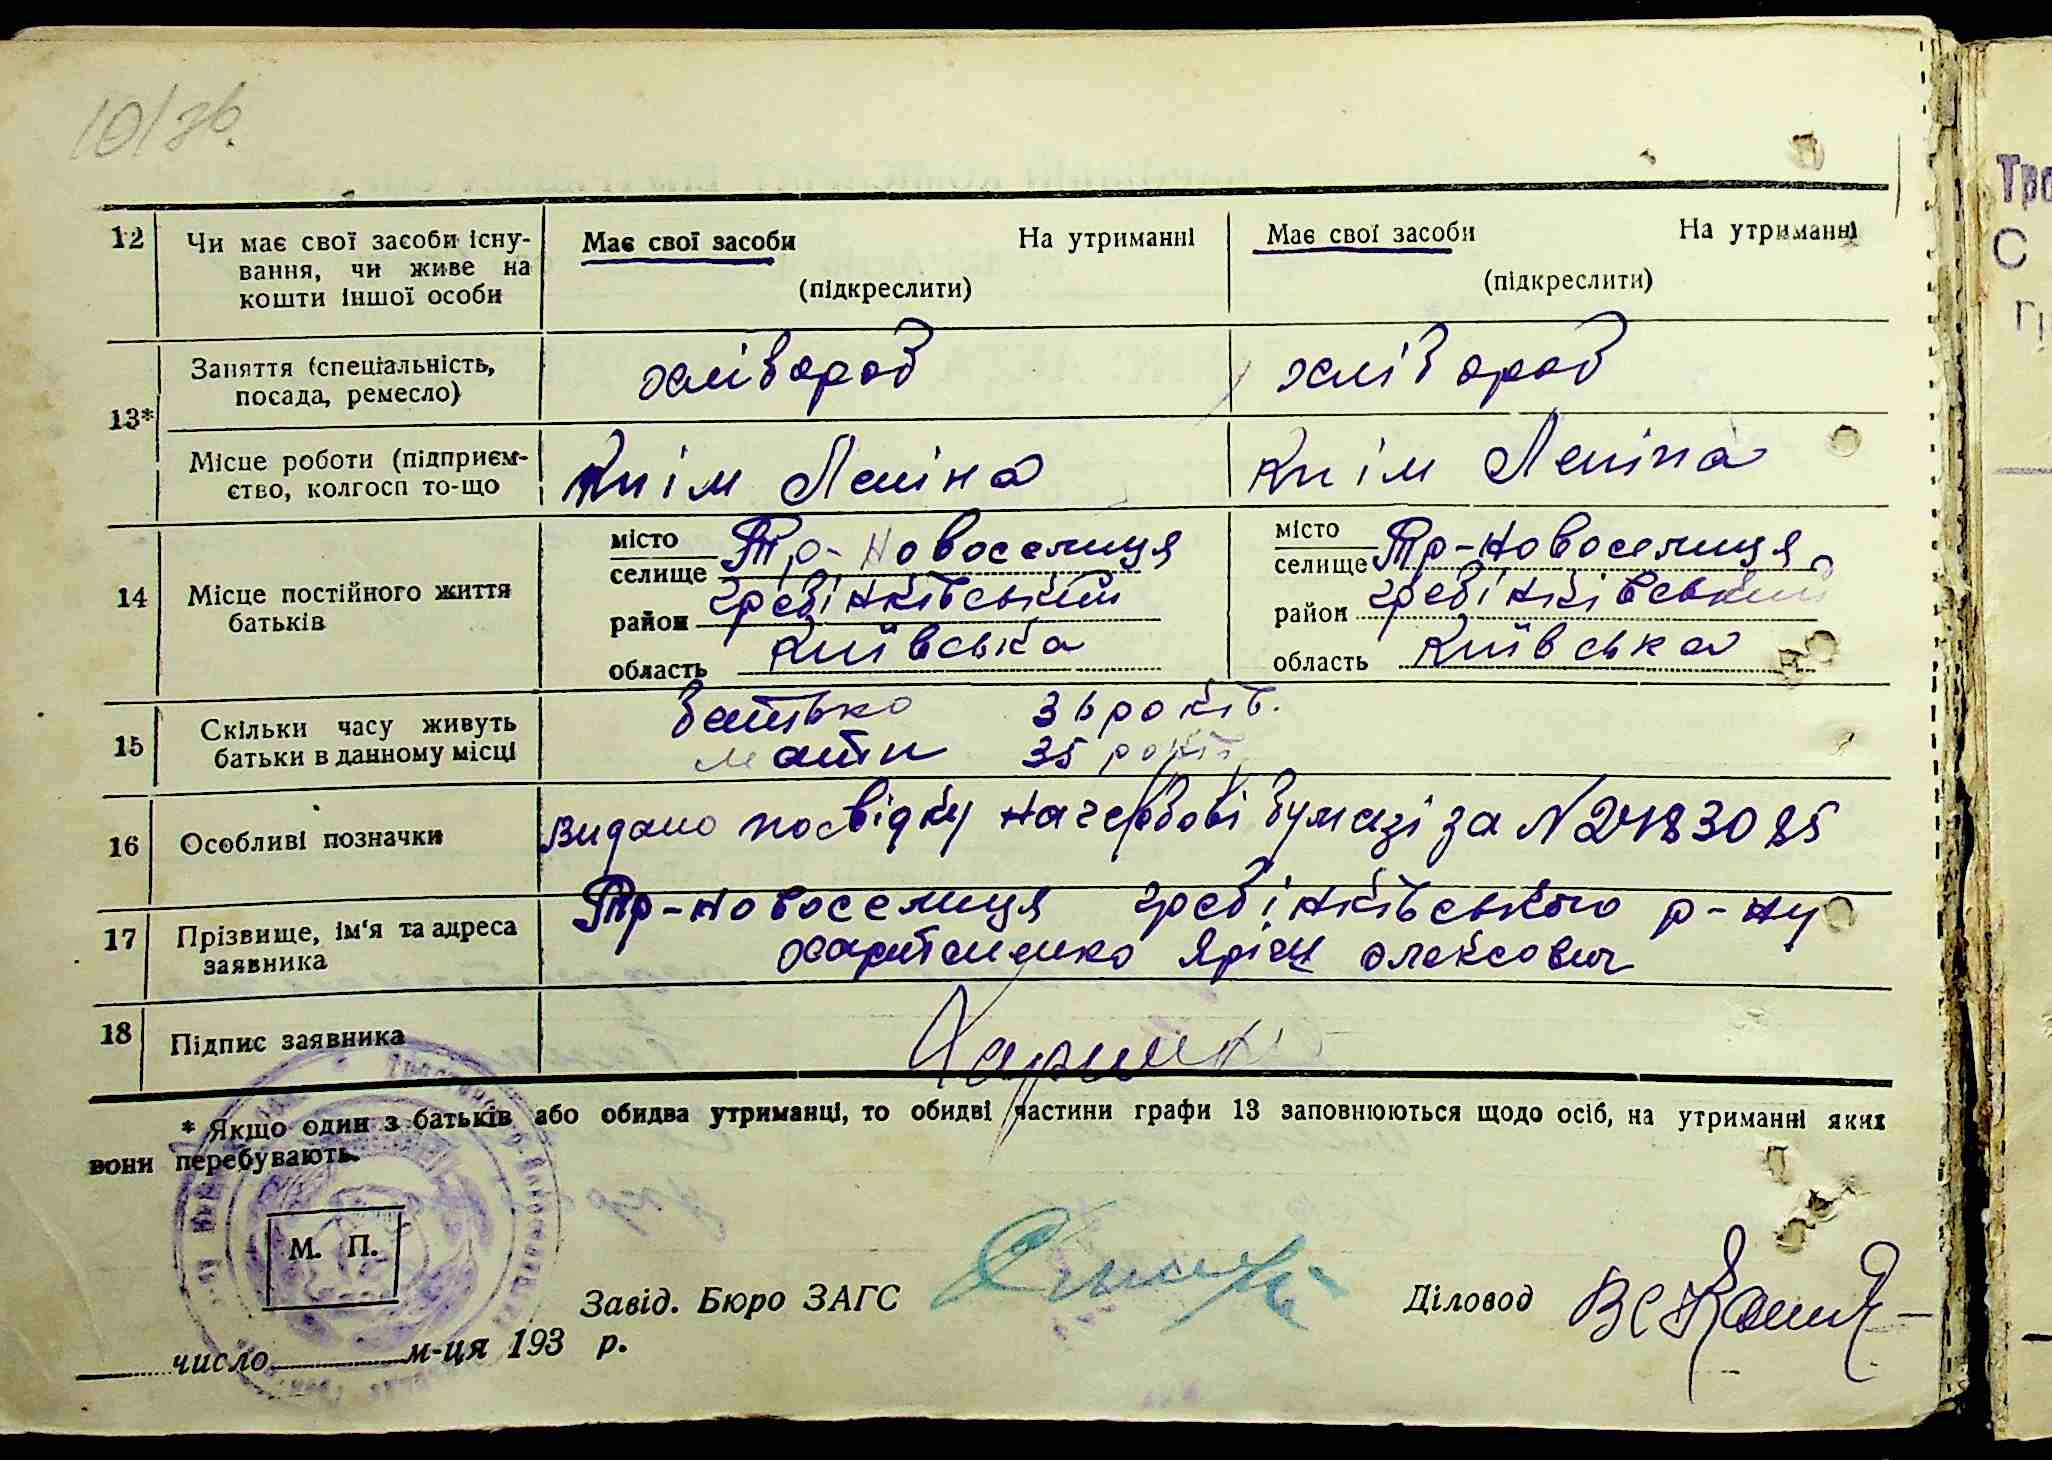 12 Чи має свої засоби існу- Має свої засоби На утриманні Має свої засоби На утриманні
вання, чи живе на
кошти іншої особи (підкреслити) (підкреслити)
13* Заняття (спеціальність, хлівороб хлівороб
посада, ремесло)
Місце роботи (підприєм- Кнім Леніна Кнім Леніна
ство, колгосп то-що
14 Місце постійного життя батьків
місто селище Тр-Новоселиця місто селище Тр-Новоселиця
район гребінківський район гребінківський
область Київська область Київська
15 Скільки часу живуть батько 36 років.
батьки в данному місці мати 35 років
16 Особливі позначки видано посвідку на гербові бумазі за N
17 Прізвище, ім'я та адреса Тр-Новоселиця гребінківського р-ну
заявника Олексович
18 Підпис заявника
* Якщо один з батьків або обидва утриманці, то обидві частини графи 13 заповнюються щодо осіб, на утриманні яких
вони перебувають.
М. П.
Завід. Бюро ЗАГС Діловод
число м-ця 193 р.